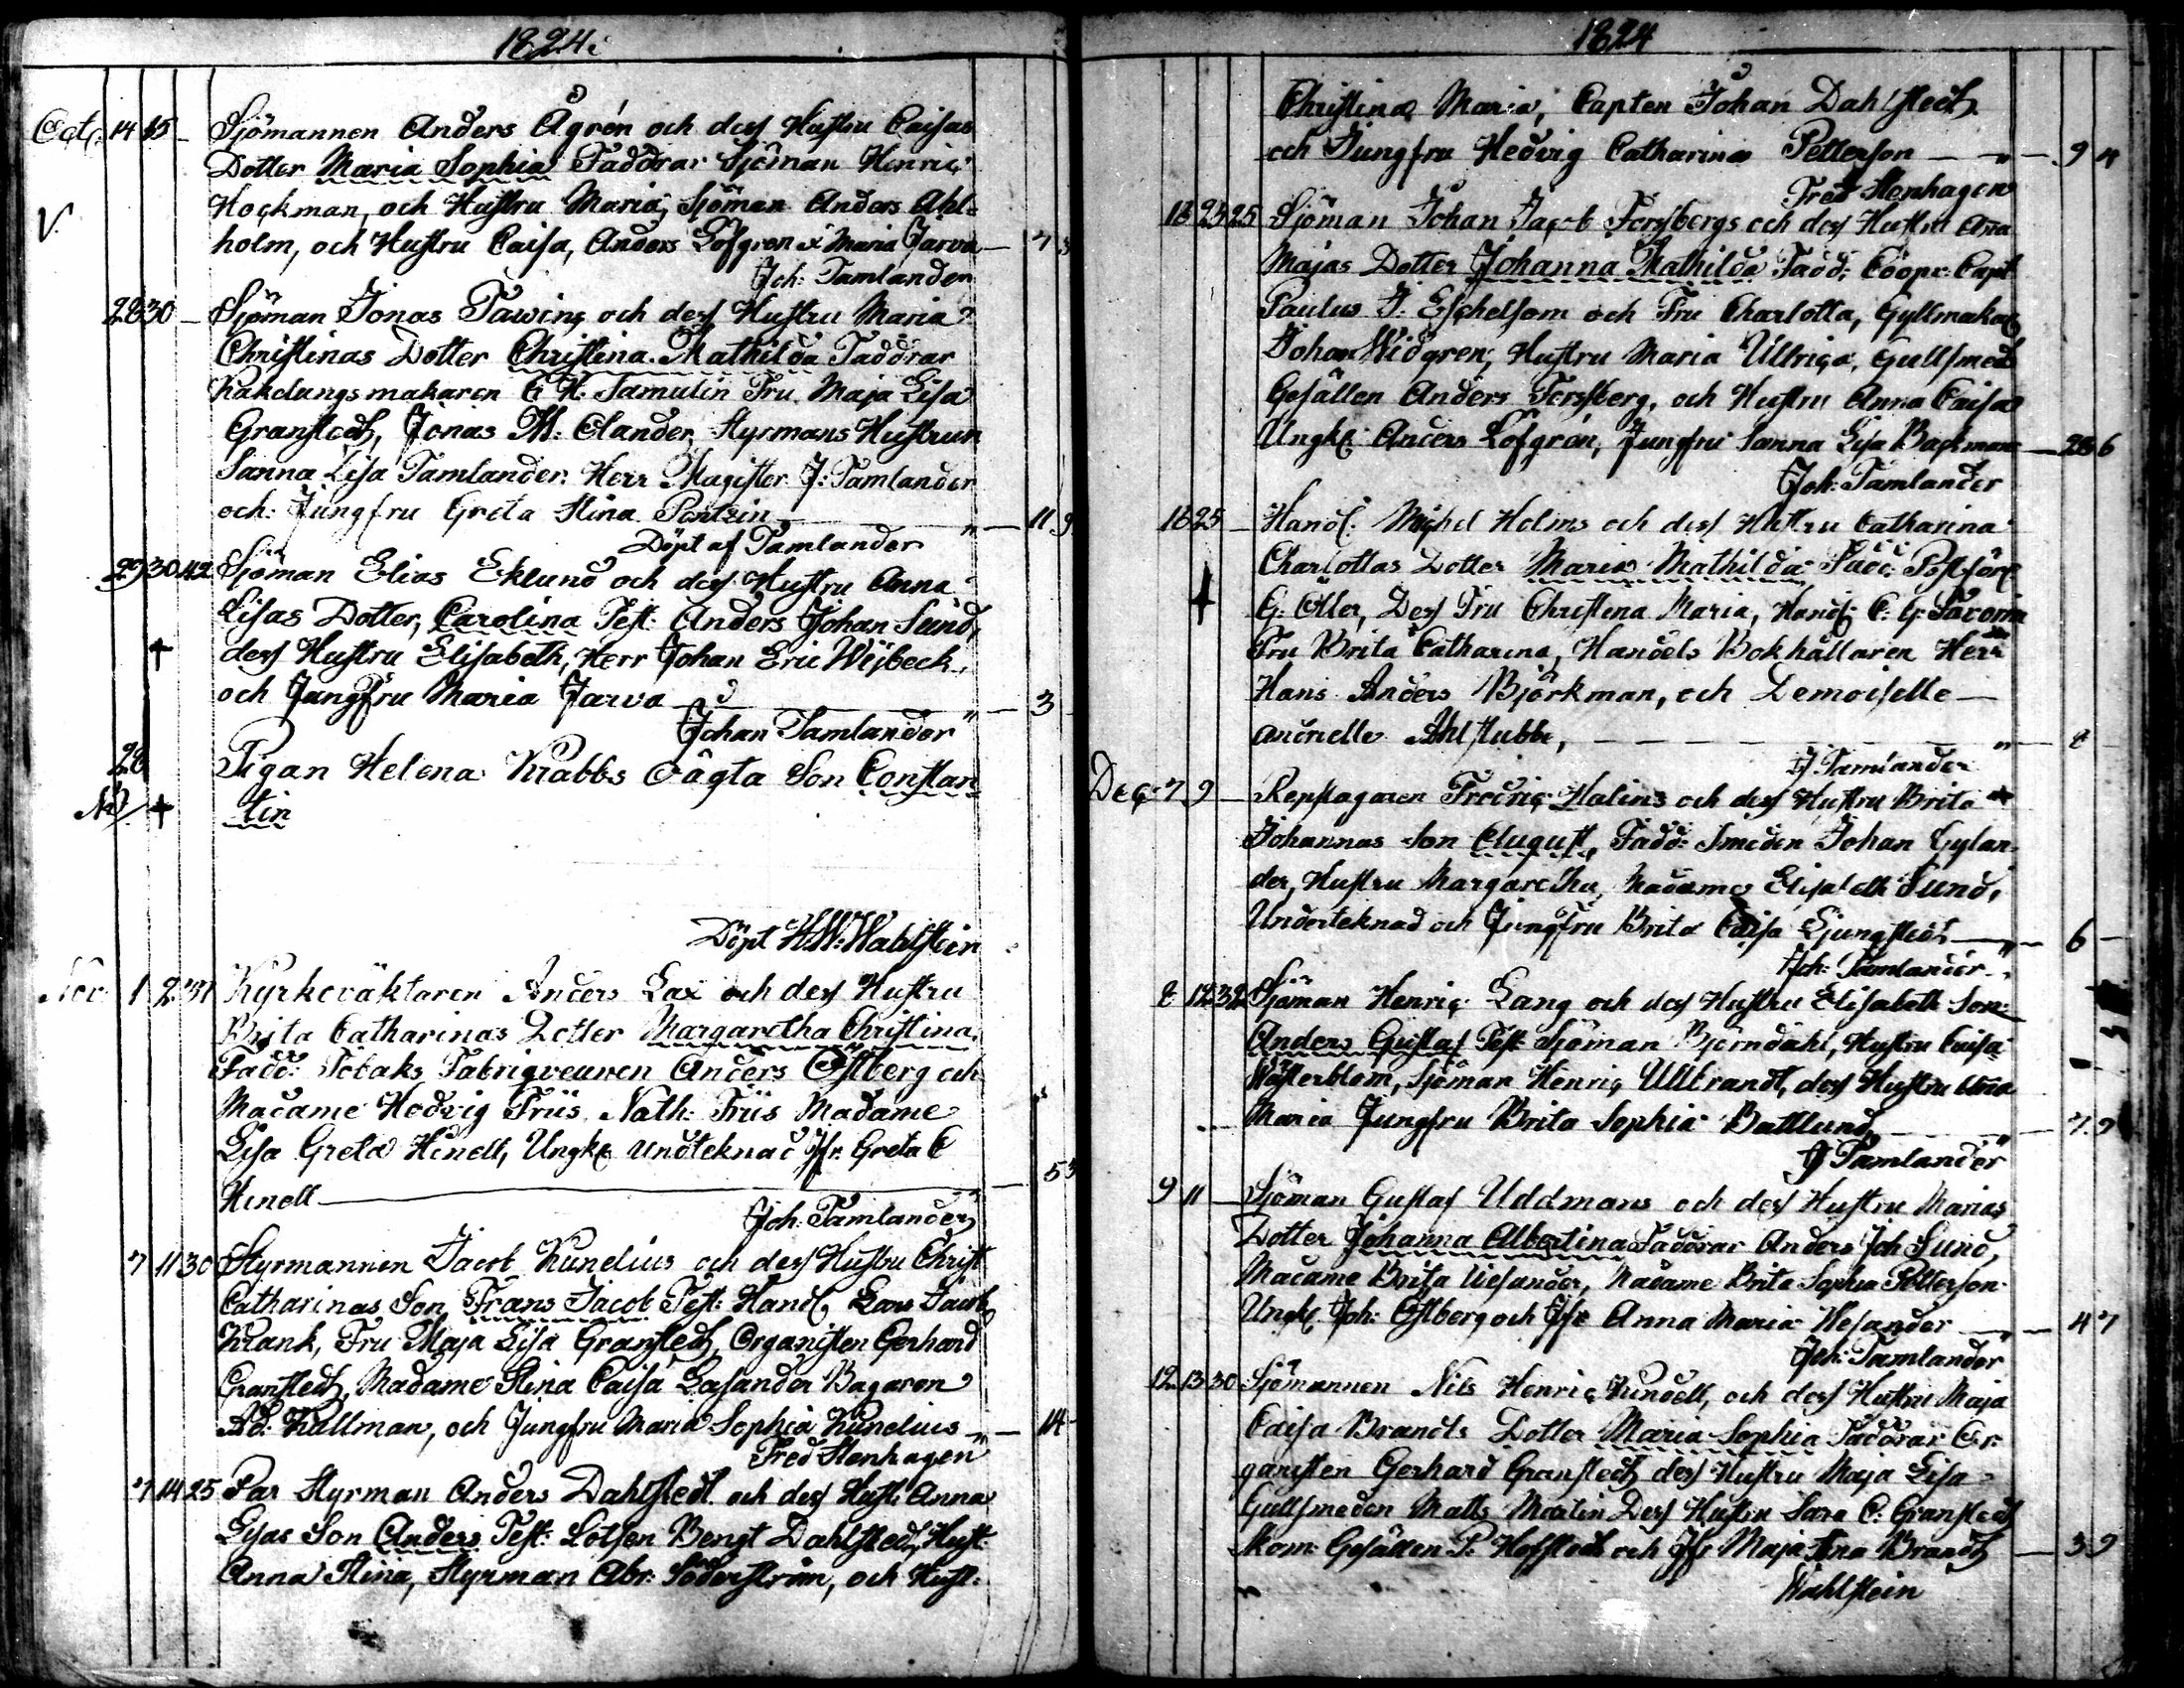 1824
Oct. 14 15 — Sjömannen Anders Ågrén och dess Hustru Caisas
Dotter Maria Sophia Faddrar Sjöman Henric
V. Hockman, och Hustru Maria, Sjöman Anders Ahl-
holm, och Hustru Caisa, Anders Löfgren & Maria Jarva — 7 3
Joh: Tamlander
28 30 — Sjöman Jonas Tawing och dess Hustru Maria
Christinas Dotter Christina Mathilda Faddrar
Kakelungsmakaren C H: Samulin Fru Maja Lisa
Granstedt, Jonas M: Elander, Styrmans Hustrun
Sanna Lisa Tamlander. Herr Magister J: Tamlander
och Jungfru Greta Stina Pentzin — " — 11 9
Döpt af Tamlander
29 30 42 Sjöman Elias Eklund och dess Hustru Anna
Lisas Dotter, Carolina Test: Anders Johan Sund,
† dess Hustru Elisabeth, Herr Johan Eric Wijbeck,
och Jungfru Maria Jarva — " — 3
Johan Tamlander
28 Pigan Helena Krabbs oägta Son Constan-
† tin
Döpt H.W: Wahlstein
Nov. 1 2 37 Kyrkeväktaren Anders Lax och dess Hustru
Brita Catharinas Dotter Margaretha Christina.
Fadd: Tobaks Fabriqveuren Anders Östberg och
Madame Hedvig Friis, Nath: Friis Madame
Lisa Greta Hinell, Ungk. undteknad Jfr Greta C
Hinell — 5 3
Joh: Tamlander
7 11 30 Styrmannen Jacob Kunelius och dess Hustru Christ
Catharinas Son Frans Jacob Test: Handl. Lars Jacob
Krank, Fru Maja Lisa Granstedt, Organisten Gerhard
Granstedt, Madame Stina Caisa Lasander Bagaren
Ad: Kallman, och Jungfru Maria Sophia Kunelius — " — 14
Fred Stenhagen
7 14 25 Par Styrman Anders Dahlstedt och dess Hust: Anna
Lisas Son Anders Test: Lotsen Bengt Dahlstedt, Hust:
Anna Stina, Styrman Abr: Söderström, och Hust:
1824
Christina Maria, Capten Johan Dahlstedt
och Jungfru Hedvig Catharina Petterson — " — 9 4
Fred Stenhagen
18 23 25 Sjöman Johan Jacob Forsbergs och dess Hustru Ana
Majas Dotter Johanna Mathilda Fadd: Coopv: Capt
Paulus J: Eschelsom och Fru Charlotta, Gyllmakar
Johan Widgren, Hustru Maria Ullrica, Gullsmeds
Gesällen Anders Forsberg, och Hustru Anna Caisa
Ungk: Anders Löfgren, Jungfru Sanna Lisa Backman — 28 6
Joh: Tamlander
18 25 — Handl. Michel Holms och dess Hustru Catharina
Charlottas Dotter Maria Mathilda Fadd: Postför
† G: Öller, Dess Fru Christina Maria, Handl: C: G: Favorin
Fru Brita Catharina, Handels Bokhållaren Herr
Hans Anders Björkman, och Demoiselle —
Andriette Ahlstubbe, — " — 8
J: Tamlander
Dec 7 9 — Repslagaren Fredric Halins och dess Hustru Brita
Johannas Son August, Fadd: Smeden Johan Gylan-
der, Hustru Margaretha, Madame Elisabeth Sund,
Underteknad och Jungfru Brita Caisa Ljungstedt — " — 6 —
Joh: Tamlander
8 12 32 Sjöman Henric Lang och dess Hustru Elisabeth Son
Anders Gustaf Test: Sjöman Björndahl, Hustru Caisa
Wästerblom, Sjöman Henric Ullbrandt, dess Hustru Anna
Maria Jungfru Brita Sophia Battlund — " — 7 9
J Tamlander
9 11 — Sjöman Gustaf Uddmans och dess Hustru Marias
Dotter Johanna Albertina Faddrar Anders Joh Sund,
Madame Brita Wesander, Madame Brita Sophia Petterson
Ungk: Joh: Östberg och Jfr Anna Maria Wesander — " — 4 7
Joh: Tamlander
12 13 30 Sjömannen Nils Henric Kundell, och dess Hustru Maja
Caisa Brandts Dotter Maria Sophia Faddrar Or-
ganisten Gerhard Granstedt dess Hustru Maja Lisa
Gullsmeden Matts Martin Dess Hustru Sara C: Granstedt
Skom: Gesällen P: Hoffstedt och Jfr Maja Stina Brandt — 3 9
Wahlstein